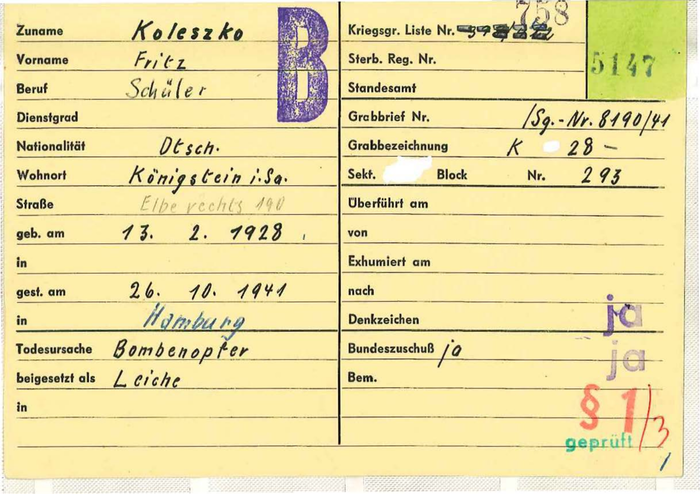 Zuname Koleszko
Vorname Fritz
Beruf Schüler
Dienstgrad
Nationalität Dtsch.
Wohnort Königstein i. Sa.
Straße Elbe rechts 190
geb. am 13. 2. 1928
in
gest. am 26. 10. 1941
in Hamburg
Todesursache Bombenopfer
beigesetzt als Leiche
in
B
758
Kriegsgr. Liste Nr.
Sterb. Reg. Nr.
5147
Standesamt
Grabbrief Nr. /Sg.-Nr. 8190/41
Grabbezeichnung K 28 –
Sekt. Block Nr. 293
Überführt am
von
Exhumiert am
nach
Denkzeichen ja
Bundeszuschuß ja ja
Bem.
§ 1/3
geprüft